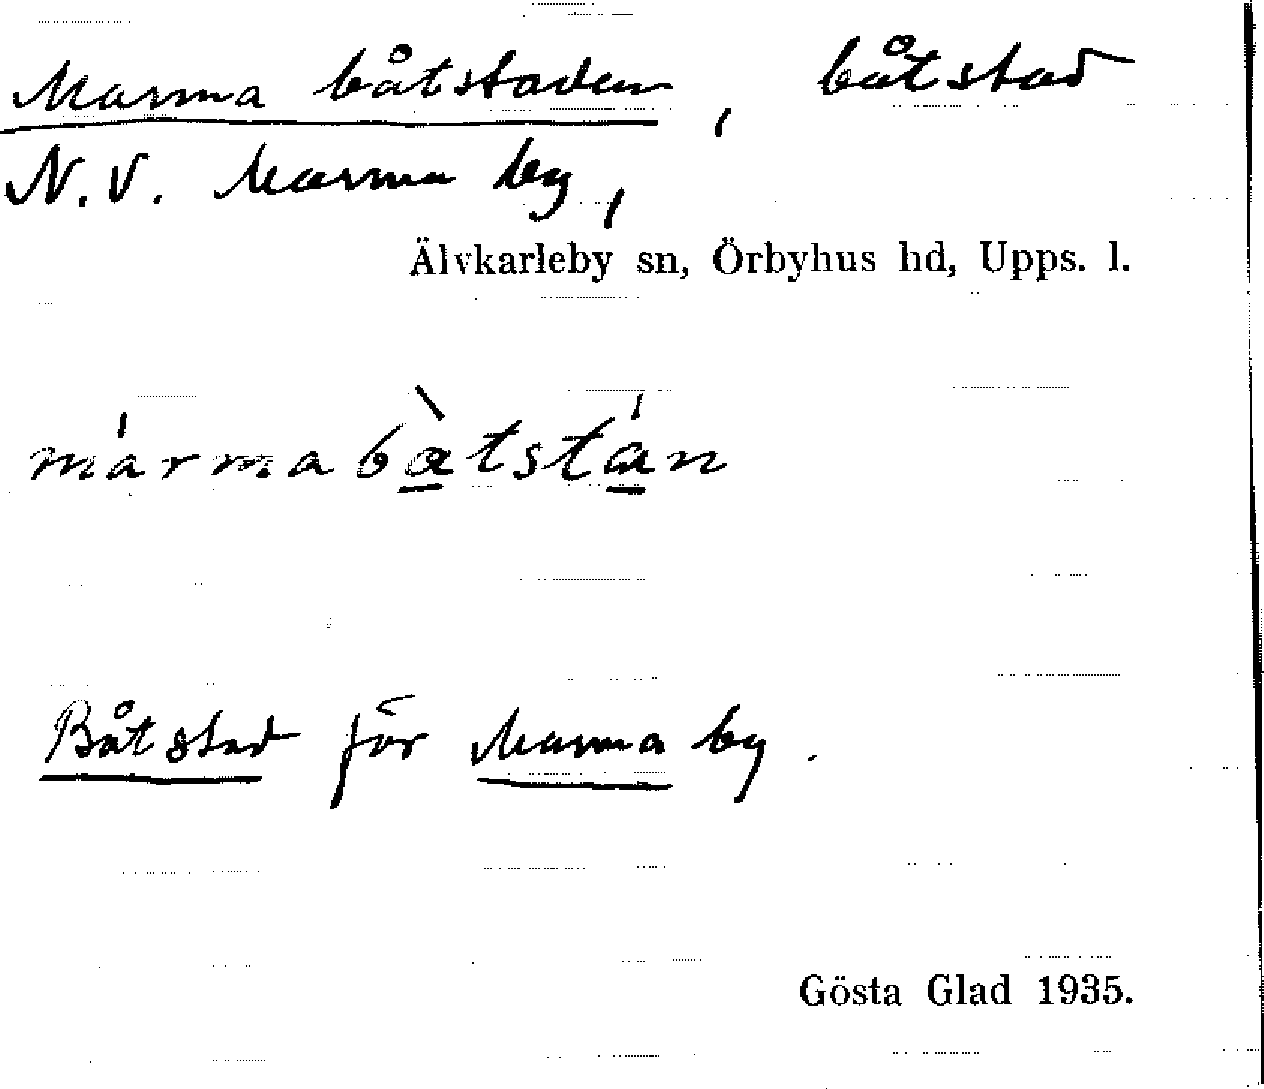 Marma båtstaden, båtstad
N.V. Marma by,
Älvkarleby sn, Örbyhus hd, Upps. l.
mármabà̱tstá̱n
Båtstad för Marma by.
Gösta Glad 1935.